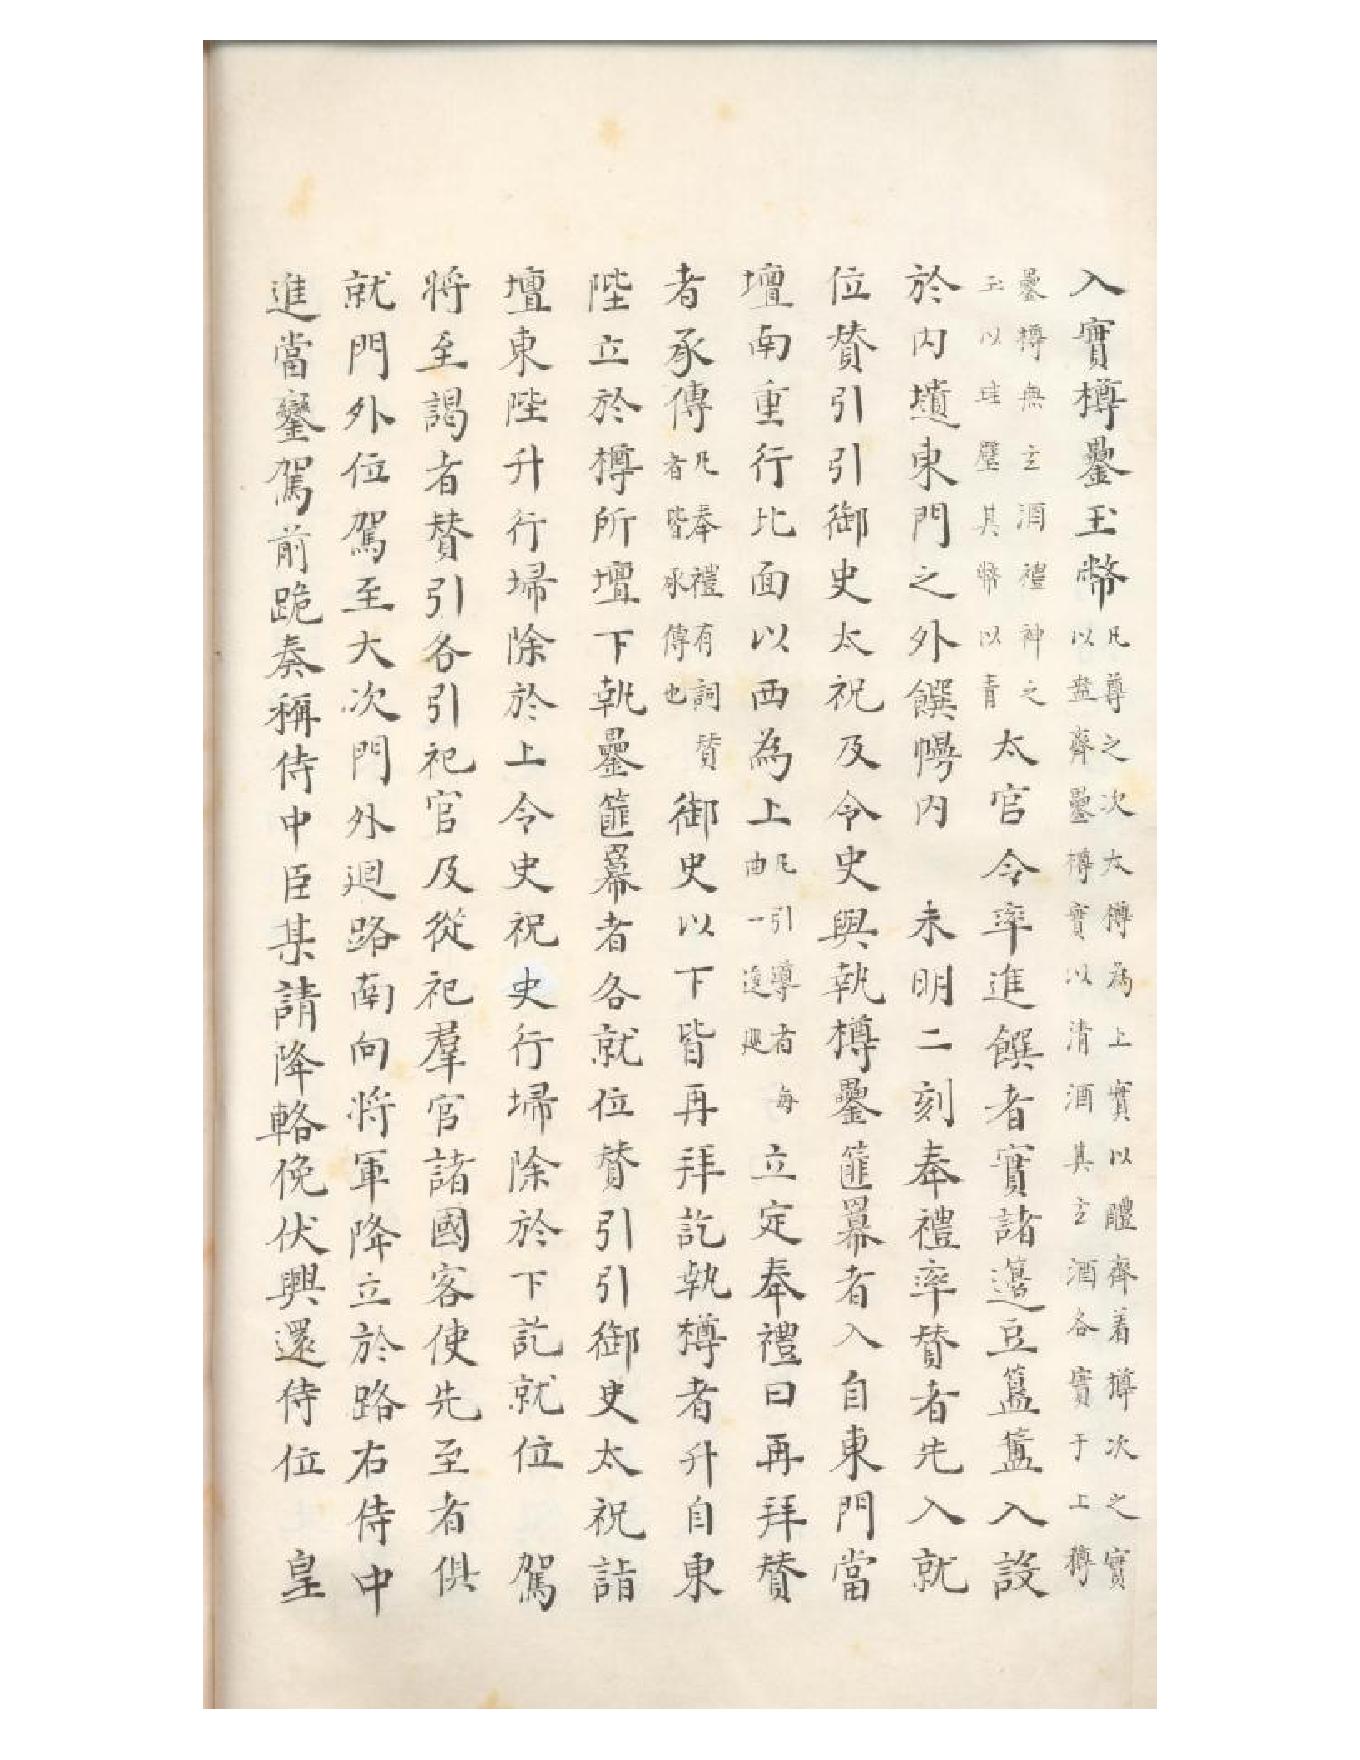 入實樽罍玉幣凡尊之次太樽為上實以醴齊着樽次之實以盎齊罍樽實以清酒其玄酒各實于上樽
罍樽無玄酒禮神之玉以珪璧其幣以青太官令率進饌者實諸籩豆簋簠入設
於內壝東門之外饌幔內 未明二刻奉禮率賛者先入就
位賛引引御史太祝及令史與執樽罍篚冪者入自東門當
壇南重行北面以西為上凡引導者每曲一逡廵立定奉禮曰再拜賛
者承傳凡奉禮有詞賛者皆承傳也御史以下皆再拜訖執樽者升自東
陛立於樽所壇下執罍篚冪者各就位賛引引御史太祝詣
壇東陛升行埽除於上令史祝史行埽除於下訖就位 駕
將至謁者賛引各引祀官及從祀羣官諸國客使先至者俱
就門外位駕至大次門外廻路南向將軍降立於路右侍中
進當鑾駕前跪奏稱侍中臣某請降輅俛伏興還侍位 皇